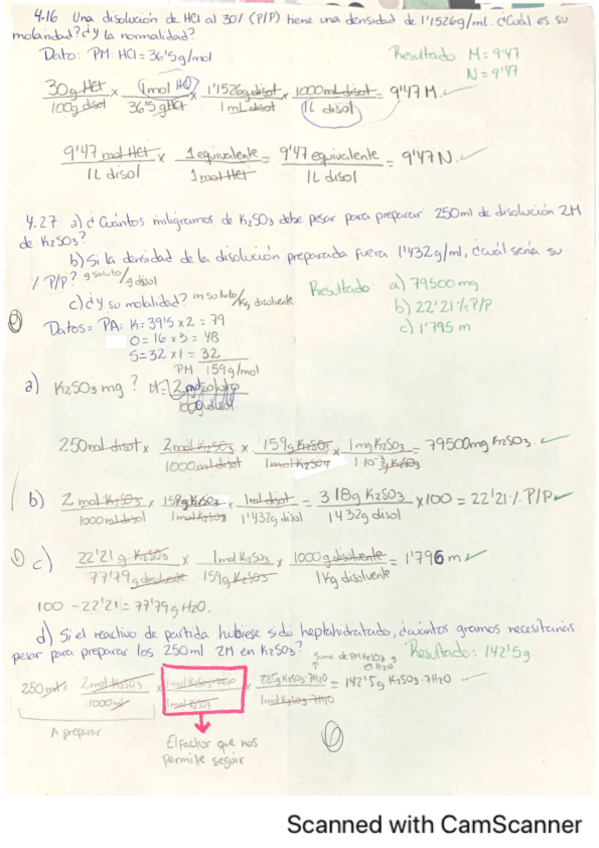 4.16 Una disolución de HCl al 30% (P/P) tiene una densidad de 1'1526g/ml. ¿Cuál es su
molaridad? ¿Y la normalidad?
Dato: PM: HCl = 36'5g/mol
Resultado M = 9'47
N = 9'47
30g HCl / 100g disol × 1mol HCl / 36'5g HCl × 1'1526g disol / 1mL disol × 1000mL disol / 1L disol = 9'47 M. ✓
9'47 mol HCl / 1L disol × 1 equivalente / 1mol HCl = 9'47 equivalente / 1L disol = 9'47 N. ✓
4.27 a) ¿Cuántos miligramos de K₂SO₃ debe pesar para preparar 250ml de disolución 2M
de K₂SO₃?
b) Si la densidad de la disolución preparada fuera 1'432g/ml, ¿cuál sería su
% P/P? g soluto/g disol
c) ¿Y su molalidad? m soluto/Kg disolvente
Resultado: a) 79500 mg
b) 22'21% P/P
c) 1'795 m
Datos = PA: K = 39'5 × 2 = 79
O = 16 × 3 = 48
S = 32 × 1 = 32
PM 159g/mol
a) K₂SO₃ mg? M =
250ml disol × 2mol K₂SO₃ / 1000ml disol × 159g K₂SO₃ / 1mol K₂SO₃ × 1mg K₂SO₃ / 1·10⁻³g K₂SO₃ = 79500mg K₂SO₃. ✓
b) 2 mol K₂SO₃ / 1000ml disol × 159g K₂SO₃ / 1mol K₂SO₃ × 1ml disol / 1'432g disol = 318g K₂SO₃ / 1432g disol × 100 = 22'21% P/P ✓
c) 22'21 g K₂SO₃ / 77'79g disolvente × 1mol K₂SO₃ / 159g K₂SO₃ × 1000g disolvente / 1Kg disolvente = 1'796 m ✓
100 - 22'21 = 77'79g H₂O.
d) Si el reactivo de partida hubiese sido heptahidratado, ¿cuántos gramos necesitarías
pesar para preparar los 250ml 2M en K₂SO₃?
Resultado: 142'5g
Suma de PM K₂SO₃ y
H₂O
250ml × 2mol K₂SO₃ / 1000ml × 1mol K₂SO₃·7H₂O / 1mol K₂SO₃ × 285g K₂SO₃·7H₂O / 1mol K₂SO₃·7H₂O = 142'5g K₂SO₃·7H₂O ✓
A preparar
El factor que nos
permite seguir
Scanned with CamScanner